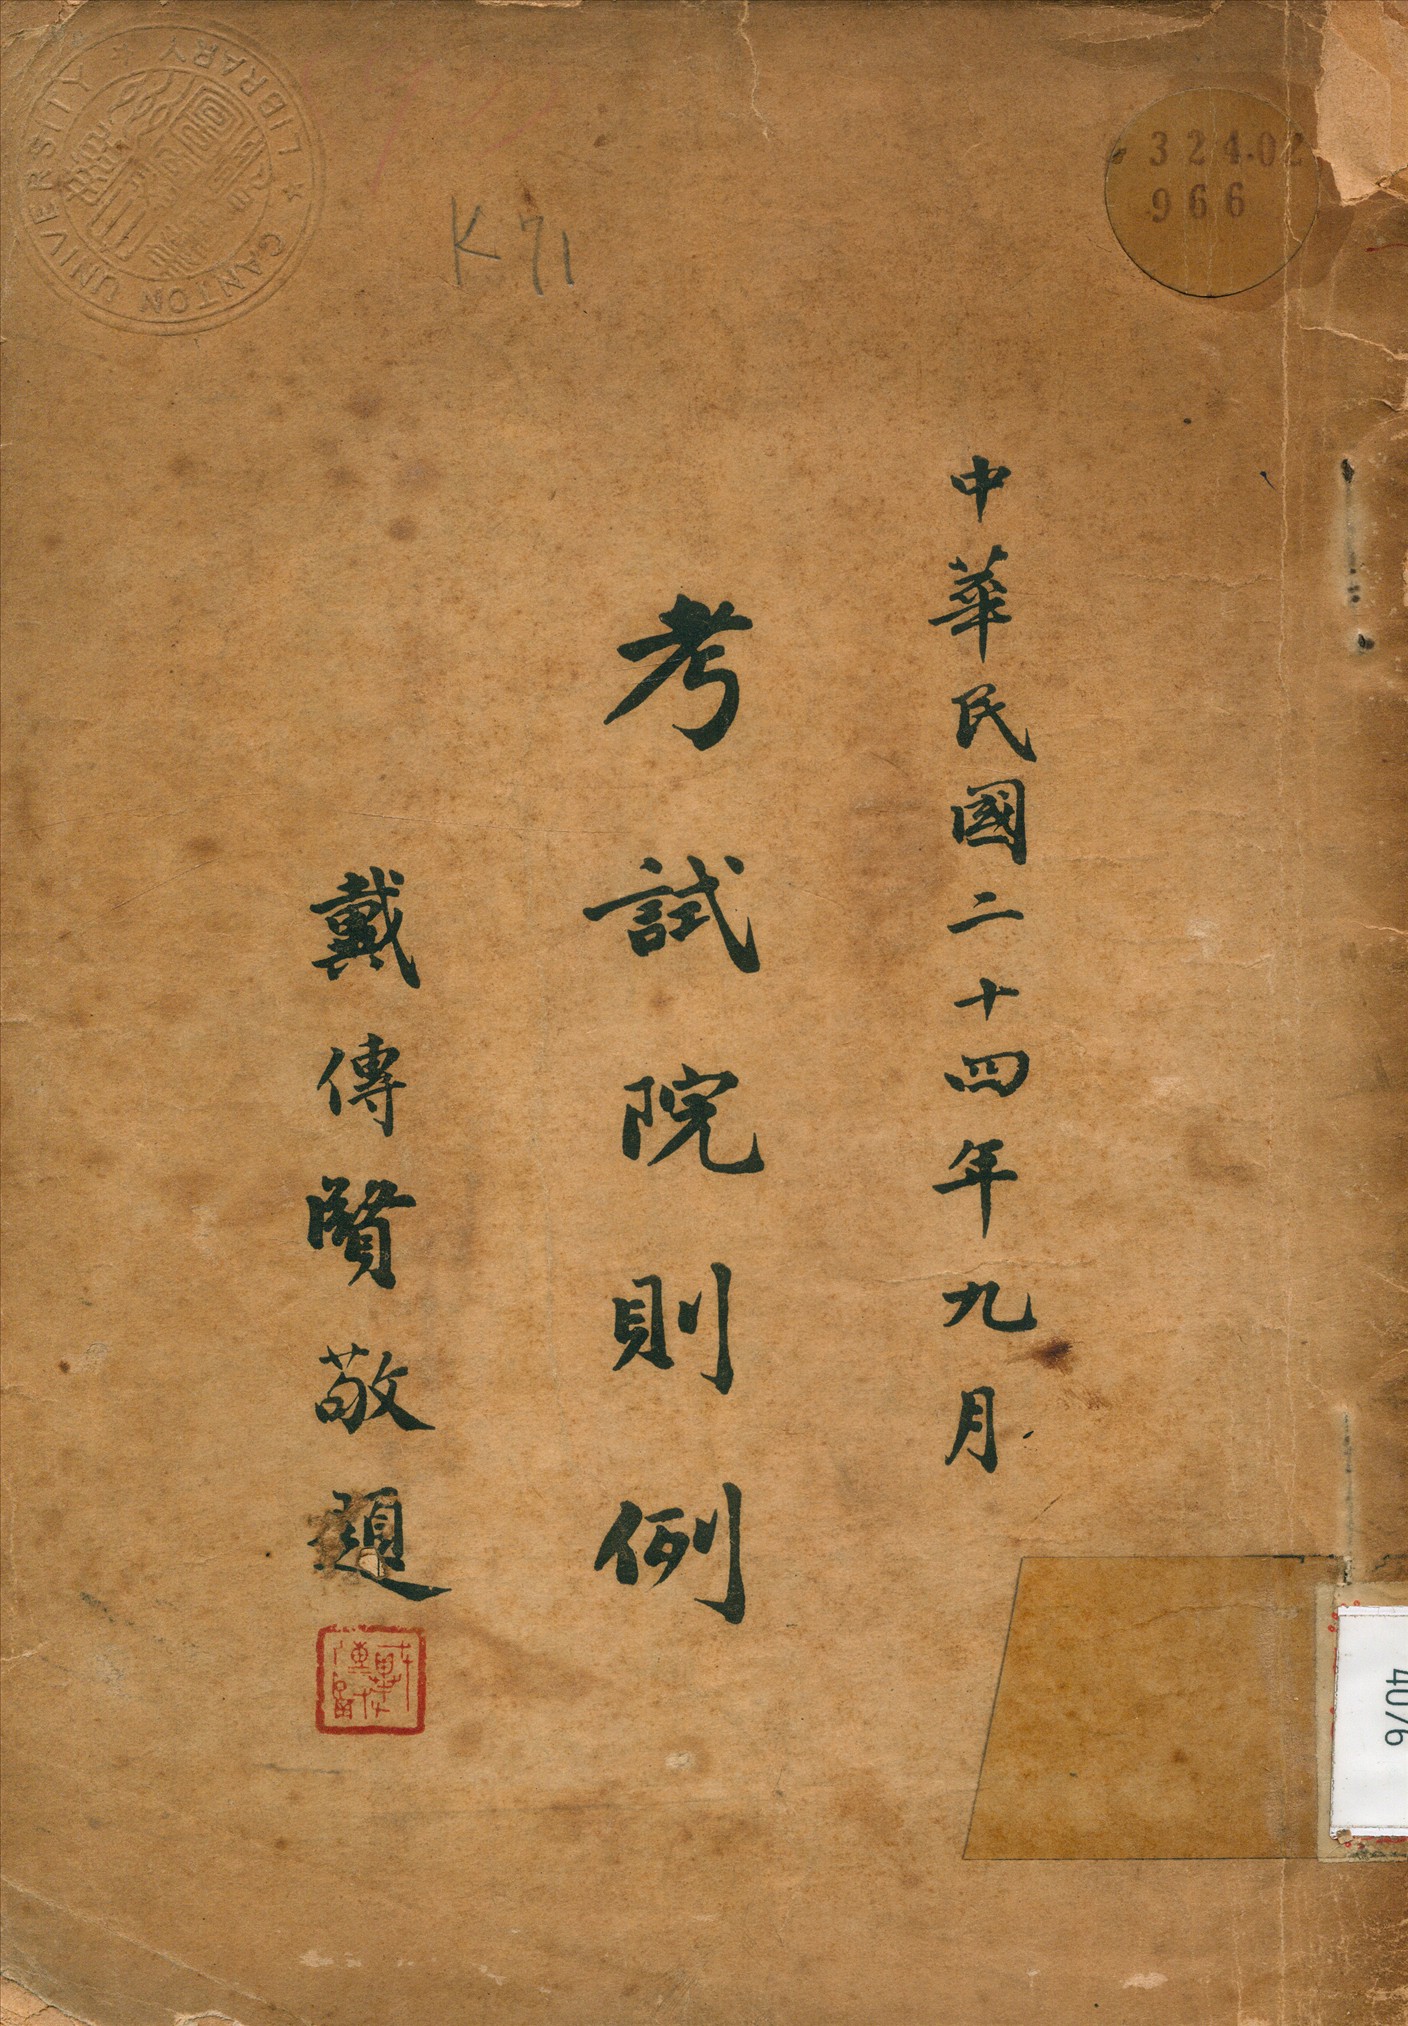 中華民國二十四年九月
考試院則例
戴傳賢敬題
戴傳賢印
CANTON UNIVERSITY
LIBRARY
K71
324.02
966
4076